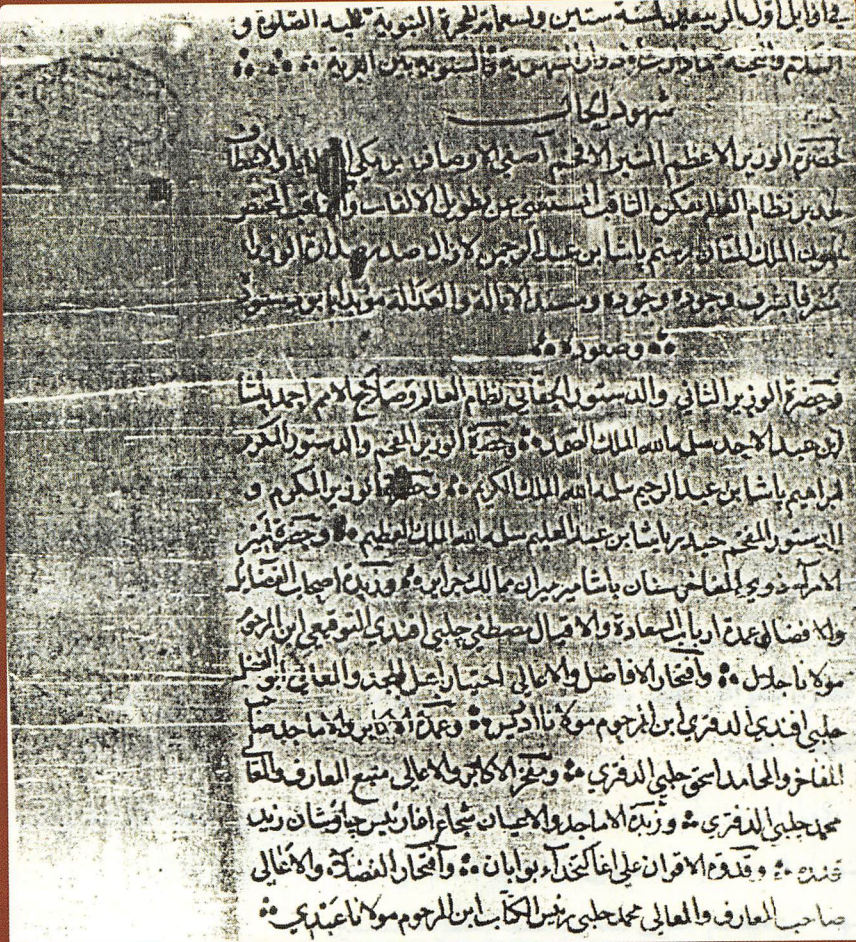 في اوايل اول الربيعين لسنة ستين وتسعماية للهجرة النبوية عليه الصلوة و
السلم والتحية والسنوية بين البرية
شهود الحال
لحضرة الوزير الاعظم المشير الافخم آصفي الاوصاف برمكي
مدبر نظام العالم بفكر الثاقب المستغني عن تطويل الالقاب
بعون الملك المنان رستم پاشا بن عبد الرحمن لازال صدر الوزراء
وجوده وجوده ومسند الايالة والعدالة مؤيدا
وصعوده
وحضرة الوزير الثاني والدستور الحقاني نظام العالم وصلاح الامم احمد پاشا
ابن عبد الاحد سلمه الله الملك الصمد وحضرة الوزير المفخم والدستور المكرم
ابراهيم پاشا بن عبد الرحيم سلمه الله الملك الكريم وحضرة الوزير المكرم و
الدستور المفخم حيدر پاشا بن عبد العليم سلمه الله الملك العظيم وحضرة
الامراء ذوي المفاخر سنان پاشا ميرميران ممالك وزبدة اصحاب الفضايل
والافضال عمدة ارباب السعادة والاقبال مصطفى چلبي افندي التوقيعي ابن المرحوم
مولانا جلال وافتخار الافاضل والاعالي اختيار اهل المجد والمعالي ابو الفضل
چلبي افندي الدفتري ابن المرحوم مولانا ادريس وعمدة الاكابر والاماجد صاحب
المفاخر والمحامد اسحق چلبي الدفتري ومفخر الاكابر والاعالي منبع المعارف والمعالي
محمد چلبي الدفتري وزبدة الاماجد والاعيان شجاع اغا رئيس چاوشان زيد
قدره وقدوة الاقران علي اغا كتخداء بوابان وافتخار الفضلاء والاعالي
صاحب المعارف والمعالي محمد چلبي رئيس الكتاب ابن المرحوم مولانا عبدي